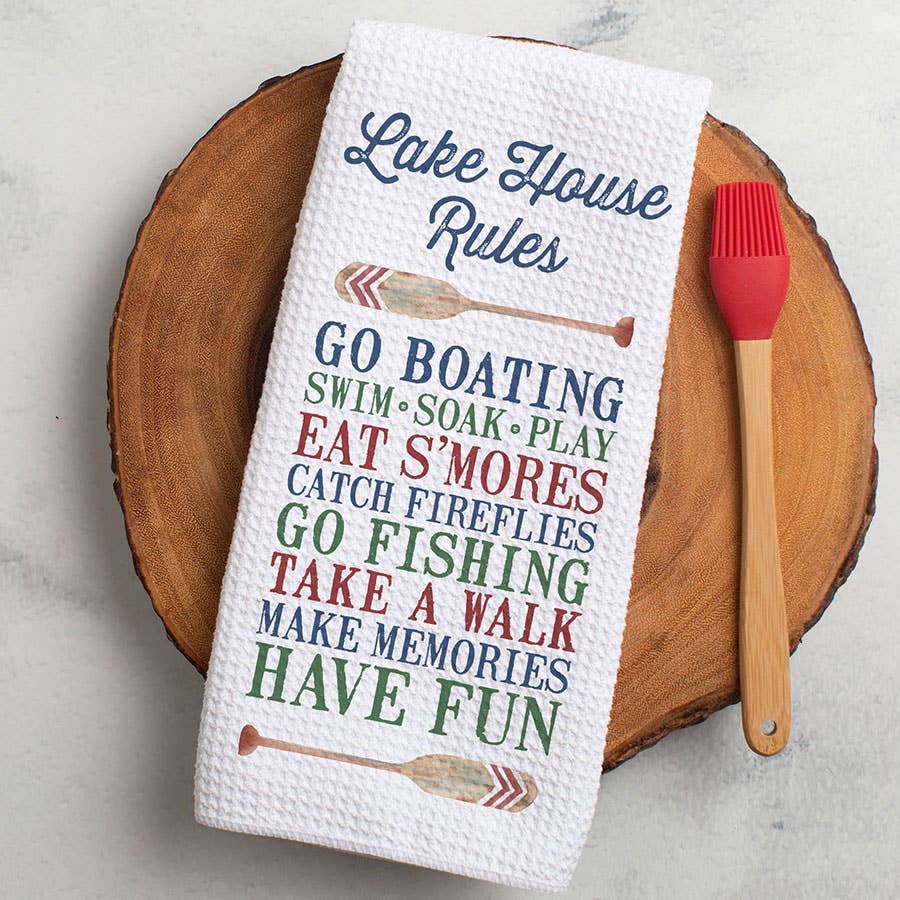 Lake House
Rules
GO BOATING
SWIM • SOAK • PLAY
EAT S'MORES
CATCH FIREFLIES
GO FISHING
TAKE A WALK
MAKE MEMORIES
HAVE FUN